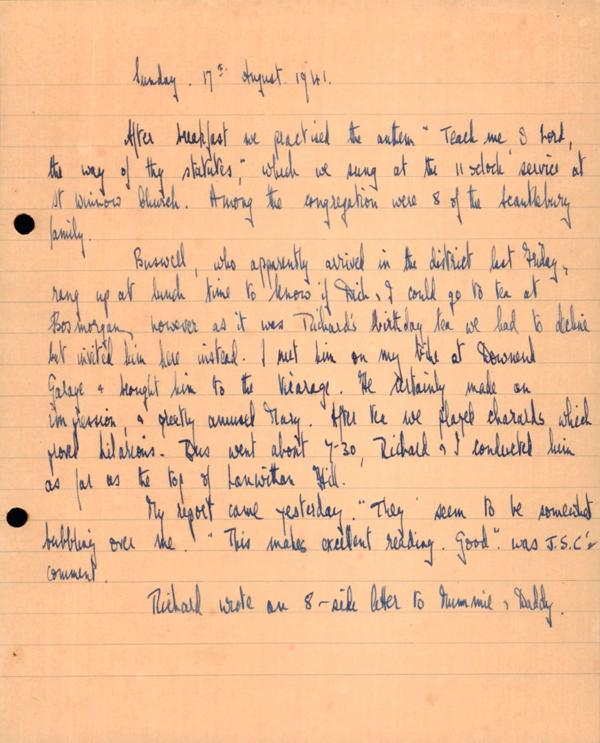 Sunday. 17th August. 1941.
After breakfast we practised the anthem "Teach me O Lord,
the way of thy statutes," which we sung at the 11 o'clock service at
St Winnow Church. Among the congregation were 8 of the Scantlebury
family.
Buswell, who apparently arrived in the district last Friday,
rang up at lunch time to know if Dick & I could go to tea at
Bosmorgan, however as it was Richard's birthday tea we had to decline
but invited him here instead. I met him on my bike at Downend
Garage & brought him to the Vicarage. He certainly made an
impression, & greatly amused Mary. After tea we played charards which
proved hilarious. Bus went about 7-30, Richard & I conducted him
as far as the top of Lanwithan Hill.
My report came yesterday. "They" seem to be somewhat
bubbling over me. "This makes excellent reading. Good". was J.S.C's
comment.
Richard wrote an 8-side letter to Mummie & Daddy.